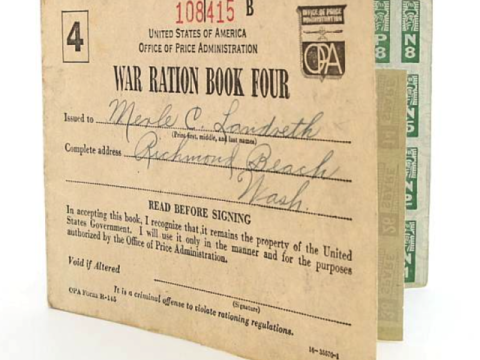 108415 B
4
UNITED STATES OF AMERICA
OFFICE OF PRICE ADMINISTRATION
OFFICE OF PRICE
ADMINISTRATION
OPA
WAR RATION BOOK FOUR
Issued to Merle C. Landreth
(Print first, middle, and last names)
Complete address Richmond Beach
Wash.
READ BEFORE SIGNING
In accepting this book, I recognize that it remains the property of the United
States Government. I will use it only in the manner and for the purposes
authorized by the Office of Price Administration.
Void if Altered
(Signature)
It is a criminal offense to violate rationing regulations.
OPA Form R-145
P
8
N
8
N
5
N
1